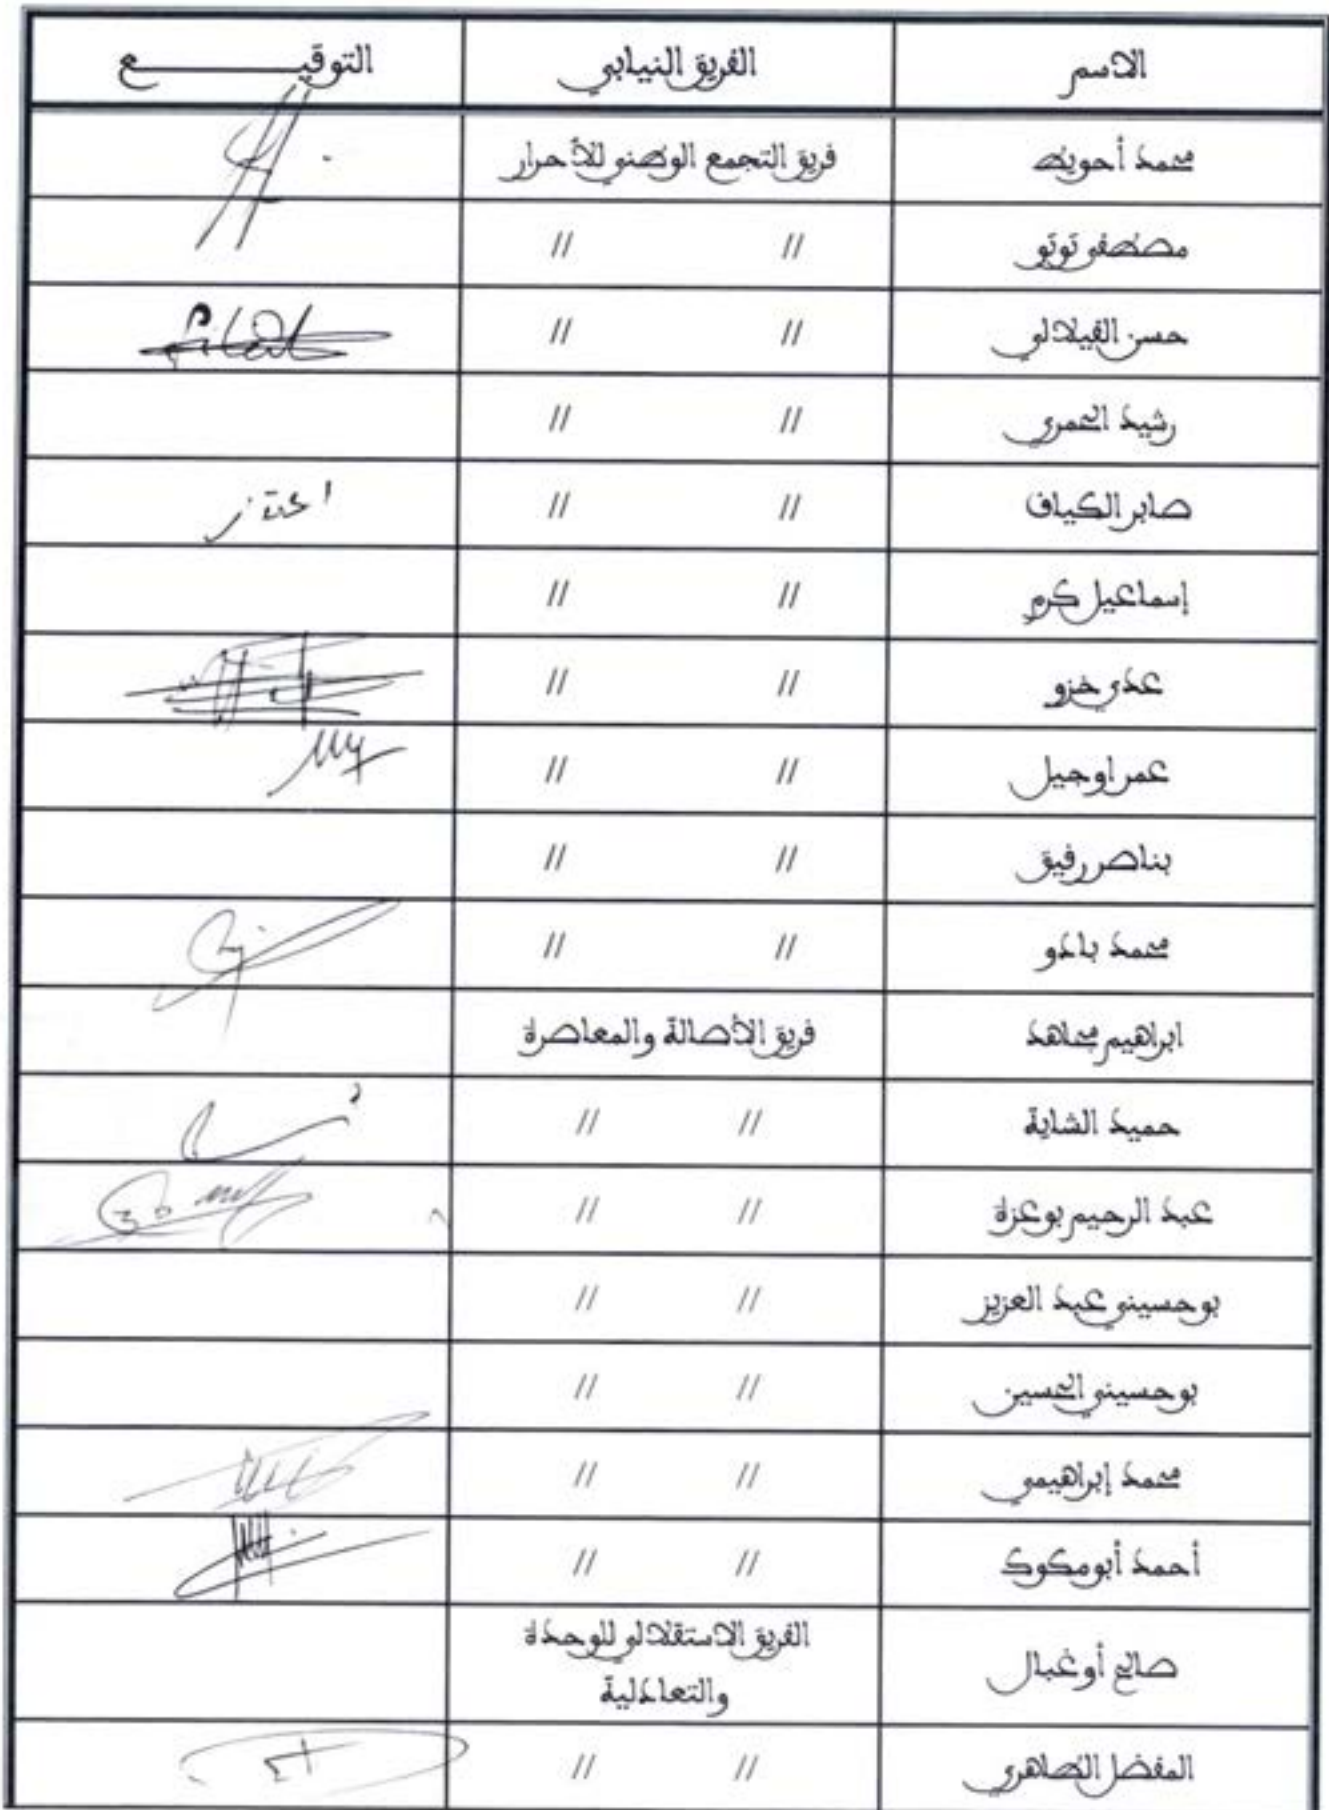 الاسم الفريق النيابي التوقيـــــــع
محمد أحويط فريق التجمع الوطني للأحرار
مصطفى توتو // //
حسن الفيلالي // //
رشيد الحمري // //
صابر الكياف // //
إسماعيل كرم // //
عدي خزو // //
عمر اوجيل // //
بناصر رفيق // //
محمد بادو // //
ابراهيم مجاهد فريق الأصالة والمعاصرة
حميد الشاية // //
عبد الرحيم بوعزة // //
بوحسيني عبد العزيز // //
بوحسيني الحسين // //
محمد إبراهيمي // //
أحمد أبومكوك // //
صالح أوغبال الفريق الاستقلالي للوحدة
والتعادلية
المفضل الطاهري // //